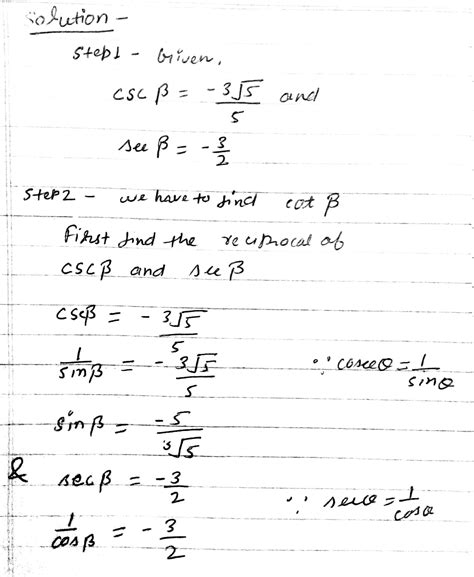 Solution -
Step1 - Given,
csc β = -3√5/5 and
sec β = -3/2
Step2 - we have to find cot β
First find the reciprocal of
cscβ and sec β
cscβ = - 3√5/5
1/sinβ = - 3√5/5 ∵ cosecθ = 1/sinθ
sin β = -5/3√5
& sec β = -3/2 ∵ secθ = 1/cosθ
1/cosβ = - 3/2